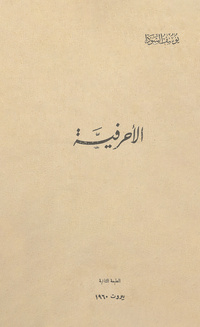 يوسف السودا
الأحرفية
الطبعة الثانية
بيروت ١٩٦٠